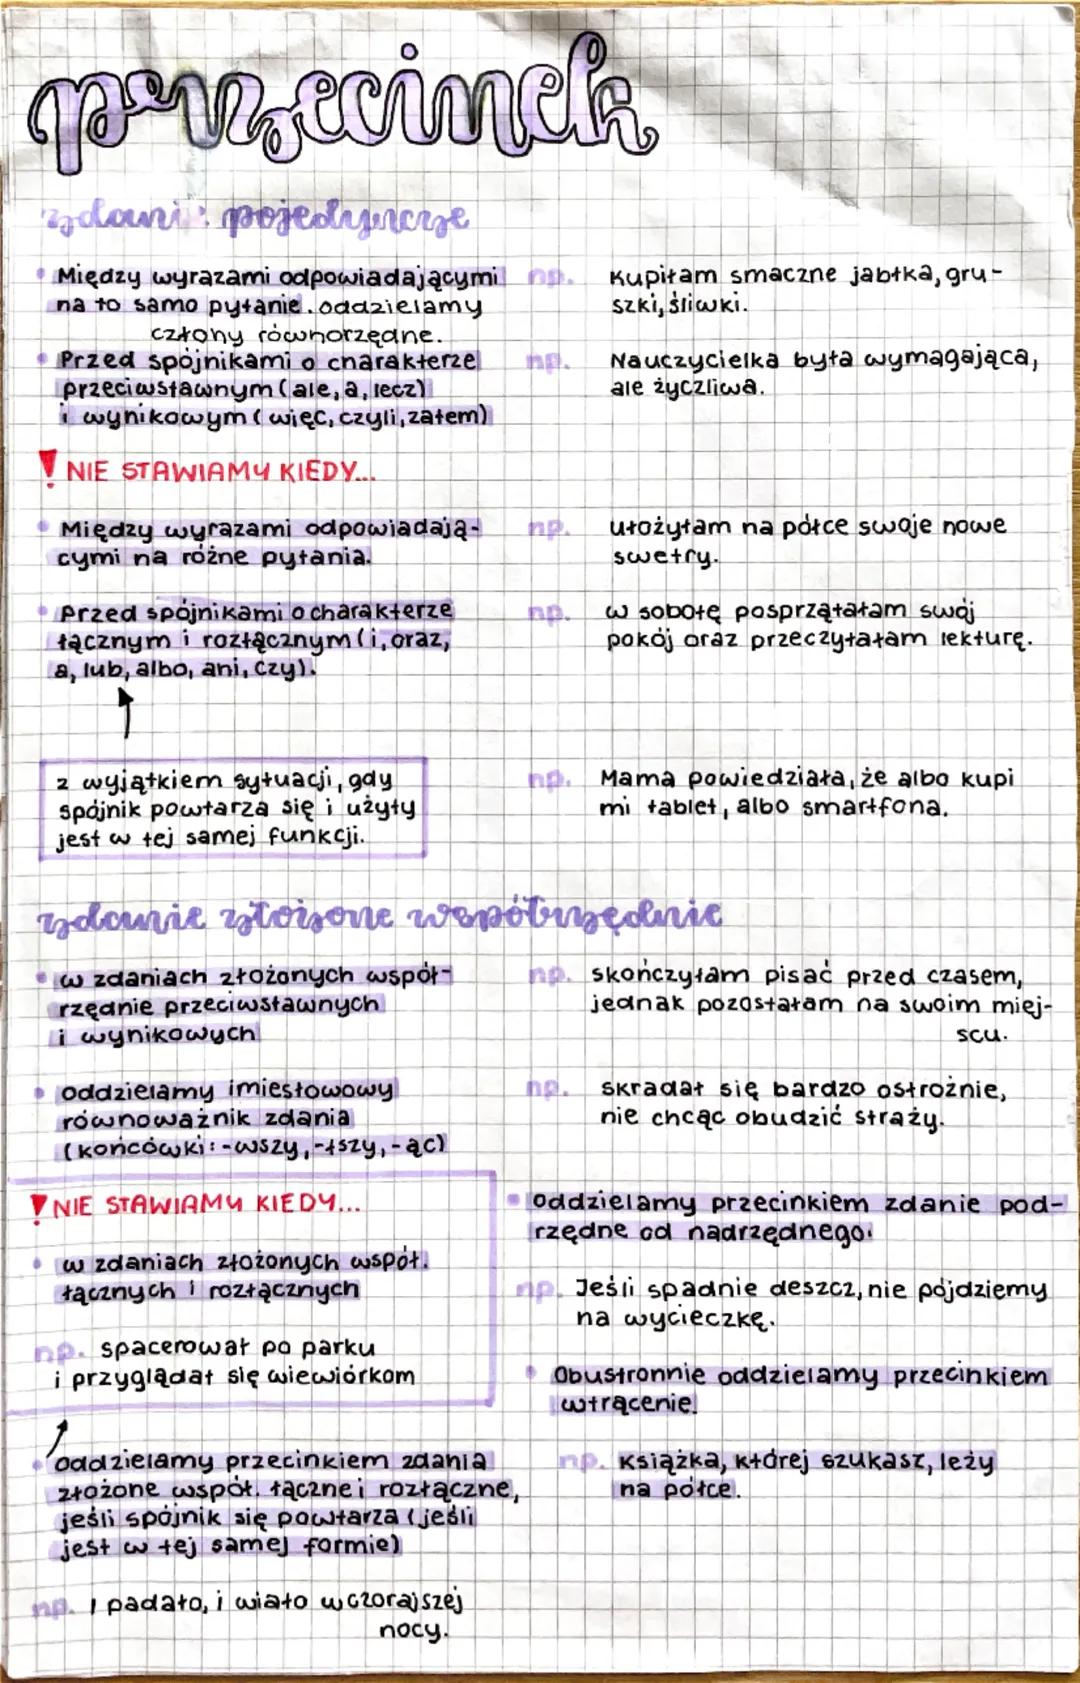 przecinek
zdanie pojedyncze
• Między wyrazami odpowiadającymi
na to samo pytanie. oddzielamy
człony równorzędne.
np. Kupiłam smaczne jabłka, gru-
szki, śliwki.
• Przed spójnikami o charakterze
przeciwstawnym (ale, a, lecz)
i wynikowym (więc, czyli, zatem)
np. Nauczycielka była wymagająca,
ale życzliwa.
! NIE STAWIAMY KIEDY...
• Między wyrazami odpowiadają-
cymi na różne pytania.
np. ułożyłam na półce swoje nowe
swetry.
• Przed spójnikami o charakterze
łącznym i rozłącznym (i, oraz,
a, lub, albo, ani, czy).
np. w sobotę posprzątałam swój
pokój oraz przeczytałam lekturę.
z wyjątkiem sytuacji, gdy
spójnik powtarza się i użyty
jest w tej samej funkcji.
np. Mama powiedziała, że albo kupi
mi tablet, albo smartfona.
zdanie złożone współrzędnie
• w zdaniach złożonych współ-
rzędnie przeciwstawnych
i wynikowych
np. skończyłam pisać przed czasem,
jednak pozostałam na swoim miej-
scu.
• oddzielamy imiesłowowy
równoważnik zdania
(końcówki: -wszy, -łszy, -ąc)
np. skradał się bardzo ostrożnie,
nie chcąc obudzić straży.
! NIE STAWIAMY KIEDY...
• w zdaniach złożonych współ.
łącznych i rozłącznych
np. spacerował po parku
i przyglądał się wiewiórkom
• oddzielamy przecinkiem zdania
złożone współ. łączne i rozłączne,
jeśli spójnik się powtarza (jeśli
jest w tej samej formie)
np. I padało, i wiało wczorajszej
nocy.
• oddzielamy przecinkiem zdanie pod-
rzędne od nadrzędnego.
np. Jeśli spadnie deszcz, nie pójdziemy
na wycieczkę.
• Obustronnie oddzielamy przecinkiem
wtrącenie.
np. Książka, której szukasz, leży
na półce.